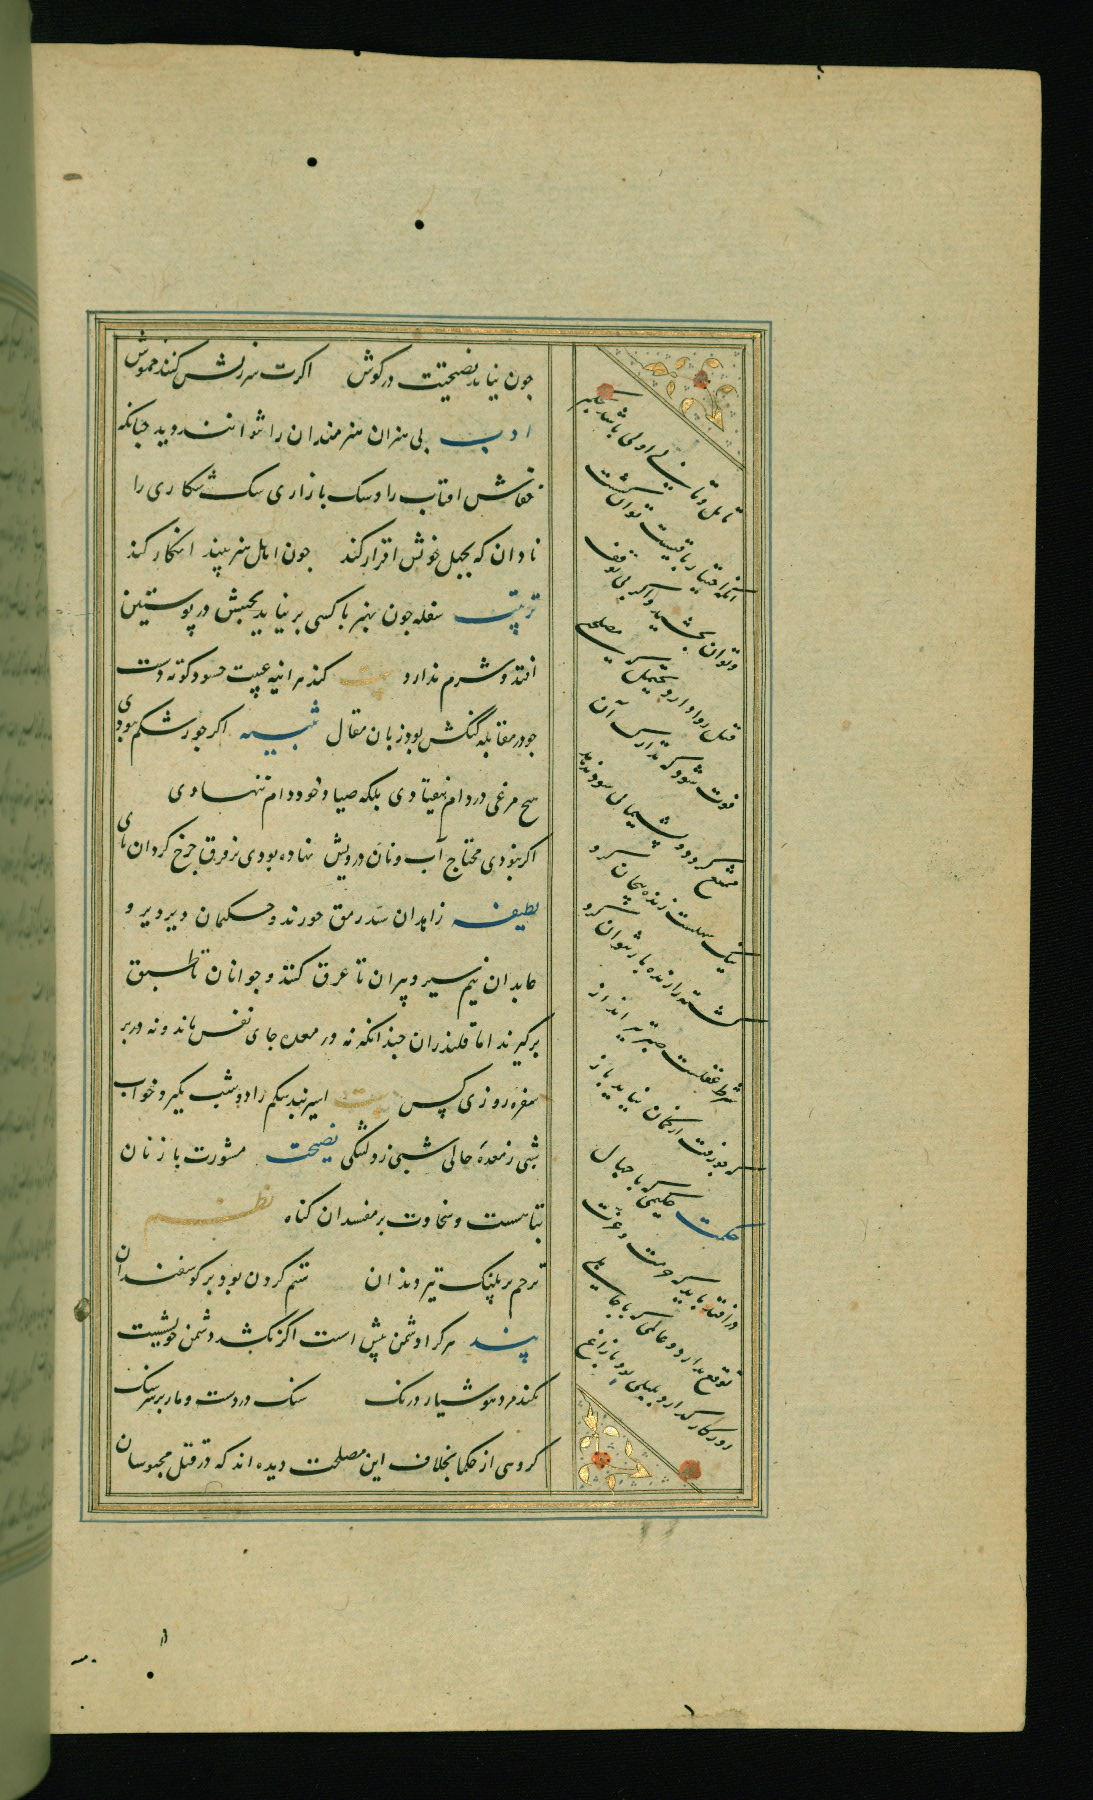 چون نیاید نصیحتت در کوش اکرت سرزنش کنند خموش
ادب بی هنران هنرمندان را نتوانند دید چنانکه
خفاش افتاب را و سک بازاری سک شکاری را
نادان که بجهل خوش اقرار کند چون اهل هنر بیند انکار کند
تربیت سفله چون بهنر با کسی بر نیاید بخبثش در پوستین
افتد و شرم ندارد بیت کند هر اینه غیبت حسود کوته دست
که در مقابله گنگش بود زبان مقال تنبیه اکر جور شکم نبودی
هیچ مرغی در دام نیفتادی بلکه صیاد خود دام ننهادی
اکر نبودی محتاج آب و نان درویش نهاده بودی بر فرق چرخ کردان پای
لطیفه زاهدان سد رمق خورند و حکیمان دیر دیر و
عابدان نیم سیر و پیران تا عرق کنند و جوانان تا طبق
برکیرند اما قلندران چندانکه نه در معده جای نفس ماند و نه در بر
سفره روزی کس بیت اسیر بند شکم را دو شب نکیرد خواب
شبی ز معده خالی شبی ز دلتنگی نصیحت مشورت با زنان
تباهست و سخاوت بر مفسدان کناه نظم
ترحم بر پلنک تیز دندان ستم کردن بود بر کوسفندان
پند هر کرا دشمن پیش است اکر نکشد دشمن خویشست
نکند مرد هوشیار درنک سنک در دست و مار بر سر سنک
کروهی از حکما بخلاف این مصلحت دیده اند که در قتل محبوسان
تامل و تانی اولی باشد بحکم
انکه اختیار باقیست توان کشت
و توان بخشید و اکر بی توقف
قتل روا دارد محتمل که مصلحتی
فوت شود که تدارک آن
ممتنع کردد و پشیمانی سود ندهد
نیک سهلست زنده بیجان کرد
کشته را زنده باز نتوان کرد
شرط عقلست صبر تیر انداز
که چو رفت از کمان نیاید باز
حکمت حکیمی که با جهال
در افتد باید که حرمت و عزت
توقع ندارد و عالمی که با جاهلی
روزکار کذارد بلبلی بود با زاغ